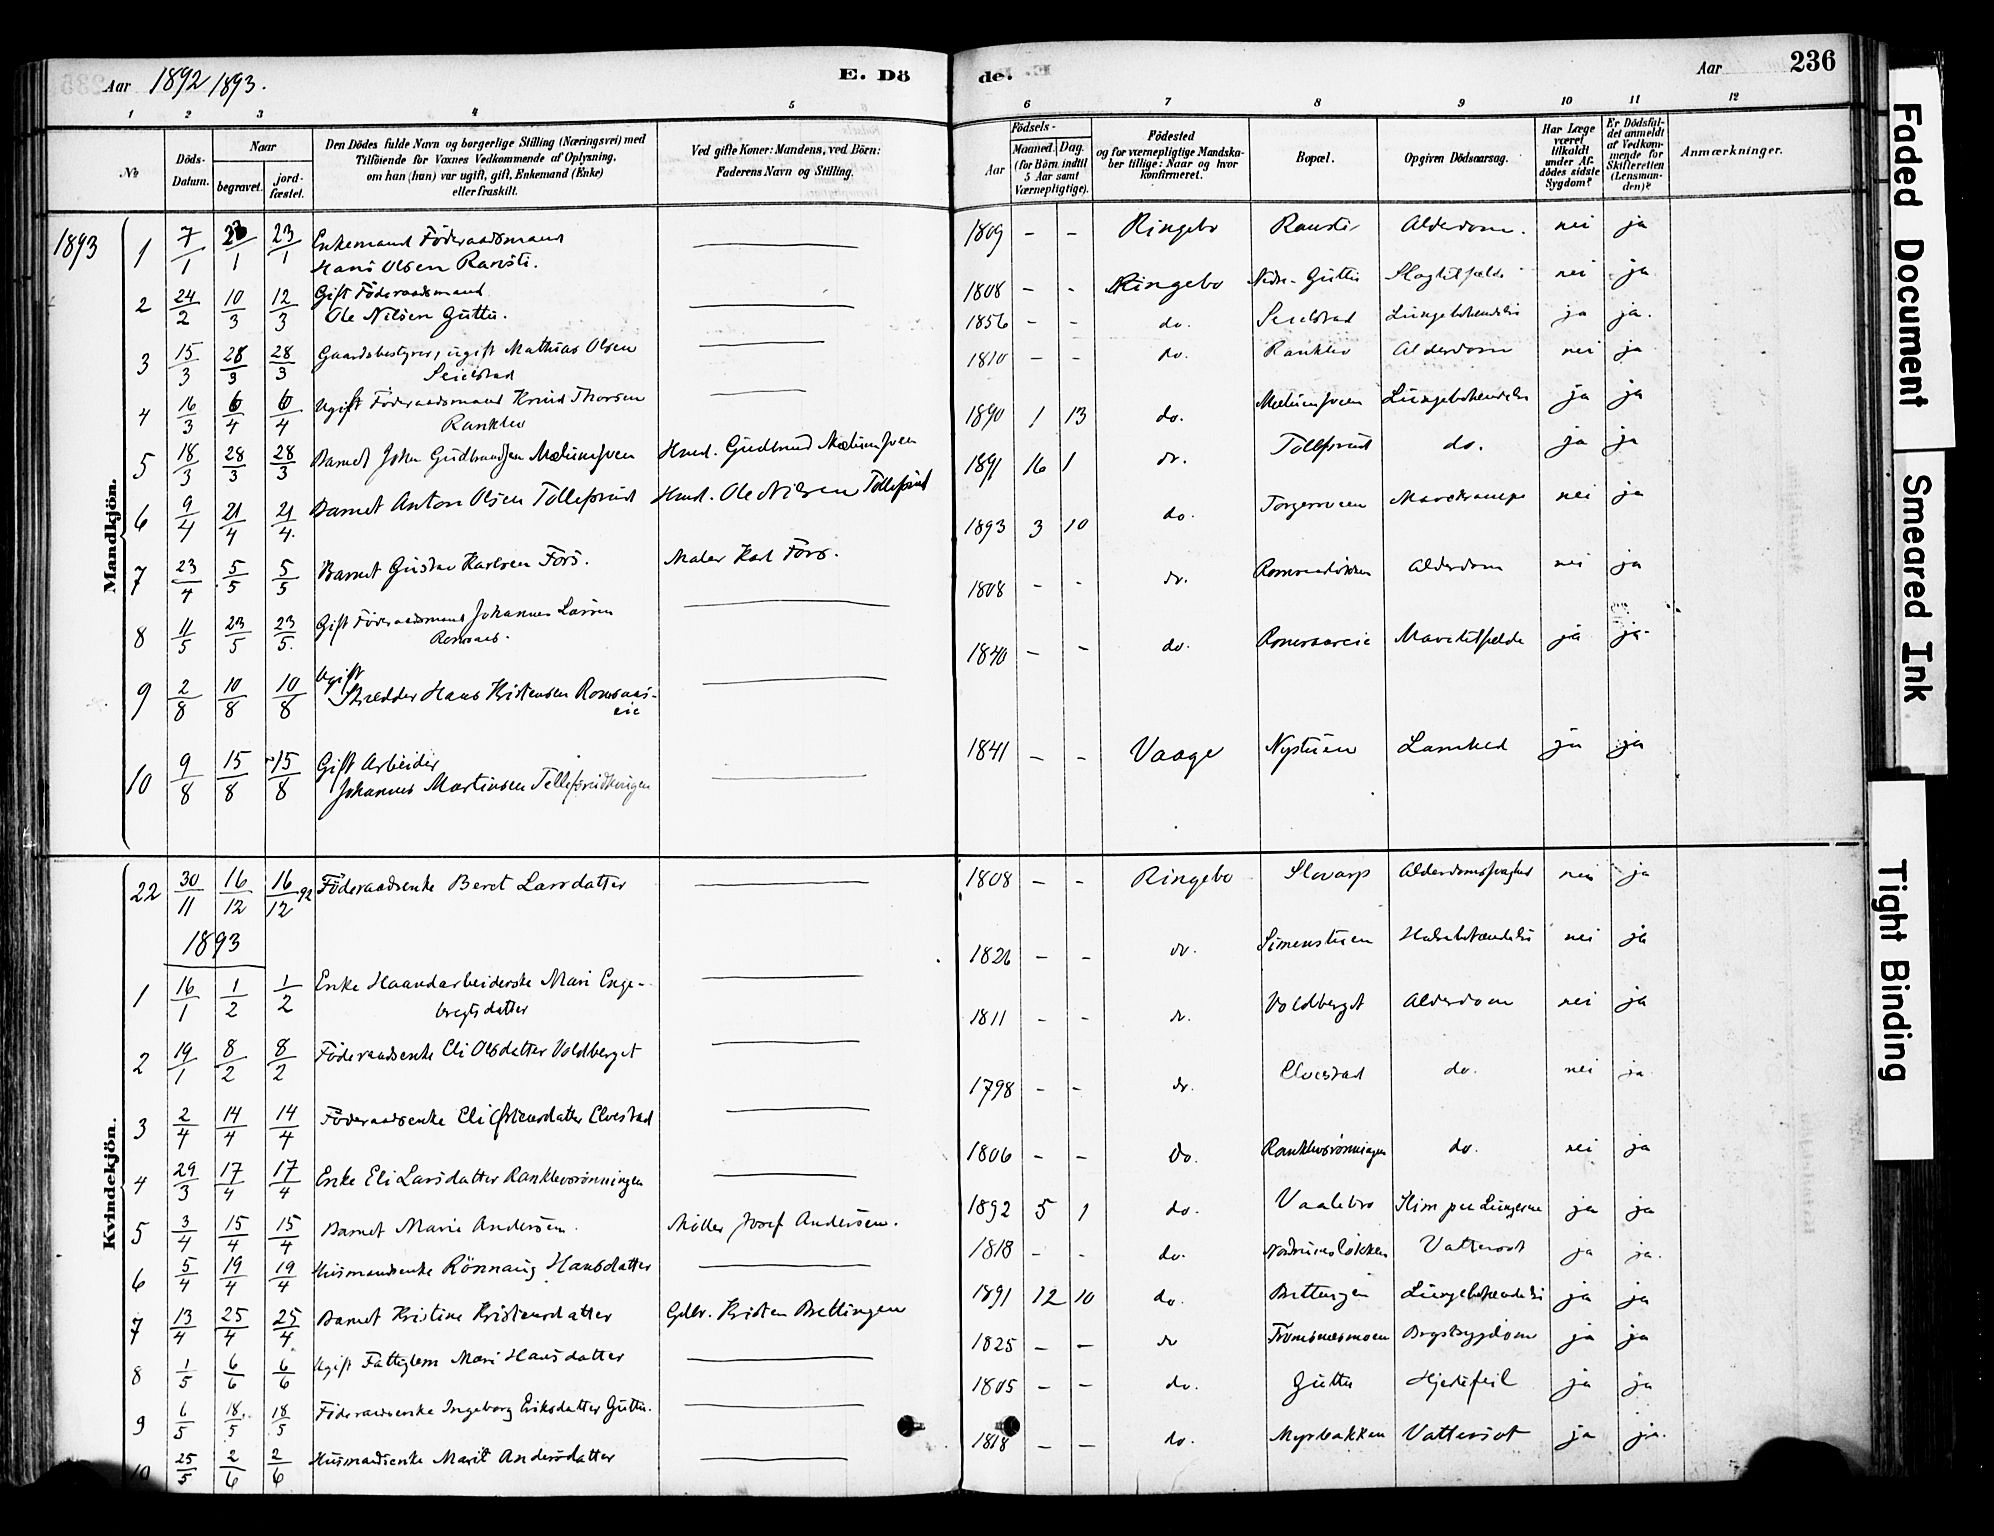 Aar 1892/1893.
E. Dö
de.
Aar
236
1 2 3 4 5
6 7 8 9 10 11 12
No
Döds-Datum.
Naar
begravet.
jord-fæstet.
Den Dödes fulde Navn og borgerlige Stilling (Næringsvei) med
Tilföiende for Voxnes Vedkommende af Oplysning,
om han (hun) var ugift, gift, Enkemand (Enke)
eller fraskilt.
Ved gifte Koner: Mandens, ved Börn:
Faderens Navn og Stilling.
Födsels-
Aar
Maaned. Dag.
(for Börn indtil
5 Aar samt
Værnepligtige).
Födested
og for værnepligtige Mandska-
ber tillige: Naar og hvor
konfirmeret.
Bopæl.
Opgiven Dödsaarsag.
Har Læge
været
tilkaldt
under Af-
dödes sidste
Sygdom?
Er Dödsfal-
det anmeldt
af Vedkom-
mende for
Skifteretten
(Lensman-
den)?
Anmærkninger.
1893
Mandkjön.
1 7/1 23/1 23/1 Enkemand Föderaadsmand
Hans Olsen Ransti. 1809 - - Ringebo Ransti Alderdom. nei ja
2 24/2 10/3 12/3 Gift Föderaadsmand
Ole Nilsen Guttu. 1808 - - Ringebo Nedre-Guttu Slagtilfælde nei ja
3 15/3 28/3 28/3 Gaardsbestyrer, ugift Mathias Olsen
Seielstad 1856 - - do. Seielstad Lungebetændelse ja ja.
4 16/3 6/4 6/4 Ugift Föderaadsmand Knud Thorsen
Ranklev 1810 - - do. Ranklev Alderdom nei ja
5 18/3 28/3 28/3 Barnet John Gudbrandsen Mælumsveen Husd. Gudbrand Mælumsveen 1890 1 13 do. Mælumsveen Lungebetændelse ja ja
6 9/4 21/4 21/4 Barnet Anton Olsen Tollefsrud Husd. Ole Nilsen Tollefsrud 1891 16 1 do. Tollefsrud do. ja ja
7 23/4 5/5 5/5 Barnet Gustav Karlsen Fors. Maler Karl Fors. 1893 3 10 do. Mavekrampe nei ja
8 11/5 23/5 23/5 Gift Föderaadsmand Johannes Larsen
Romsaas. 1808 - - do. Alderdom nei ja
9 2/8 10/8 10/8 Ugift
Skrædder Hans Kristensen Romsaas-
eie 1840 - - do. Romsaaseie Mavetilfælde ja ja.
10 9/8 15/8 15/8 Gift Arbeider
Johannes Martinsen 1841 - - Vaage Nystuen Lamhed ja ja
Kvindekjön.
22 30/11 16/12 16/12 92 Föderaadsenke Beret Larsdatter 1808 - - Ringebo Slovarp Alderdomssvaghed nei ja
1893
1 16/1 1/2 1/2 Enke Haandarbeiderske Mari Enge-
bregtsdatter 1826 - - do. Simenstuen Halsbetændelse nei ja
2 19/1 8/2 8/2 Föderaadsenke Eli Olsdatter Voldberget 1811 - - do. Voldberget Alderdom nei ja
3 2/4 14/4 14/4 Föderaadsenke Eli Østensdatter Elvestad 1798 - - do. Elvestad do. nei ja
4 29/3 17/4 17/4 Enke Eli Larsdatter Ranklevsrønningen 1806 - - do. Ranklevsrønningen do. nei ja
5 3/4 15/4 15/4 Barnet Marie Andersen. Møller Josef Andersen. 1892 5 1 do. Vaalebro Slim paa Lungerne ja ja
6 5/4 19/4 19/4 Husmandsenke Rönnaug Hansdatter 1818 - - do. Vattersot ja ja.
7 13/4 25/4 25/4 Barnet Kristine Kristensdatter Gdbr. Kristen Brettingen 1891 12 10 do. Brettingen Lungebetændelse ja ja
8 1/5 6/6 6/6 Ugift Fattiglem Mari Hansdatter 1825 - - do Tromsnesmoen Brystsygdom ja ja
9 6/5 18/5 18/5 Föderaadsenke Ingeborg Eriksdatter Guttu. 1805 - - do. Guttu Hjertefeil ja ja
10 25/5 2/6 2/6 Husmandsenke Marit Andersdatter 1818 - - do. Myrbakken Vattersot ja ja.
Faded Document
Smeared Ink
Tight Binding